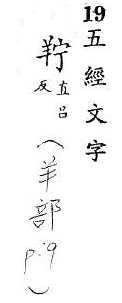 19五經文字
羜 直呂反（羊部 p.9）